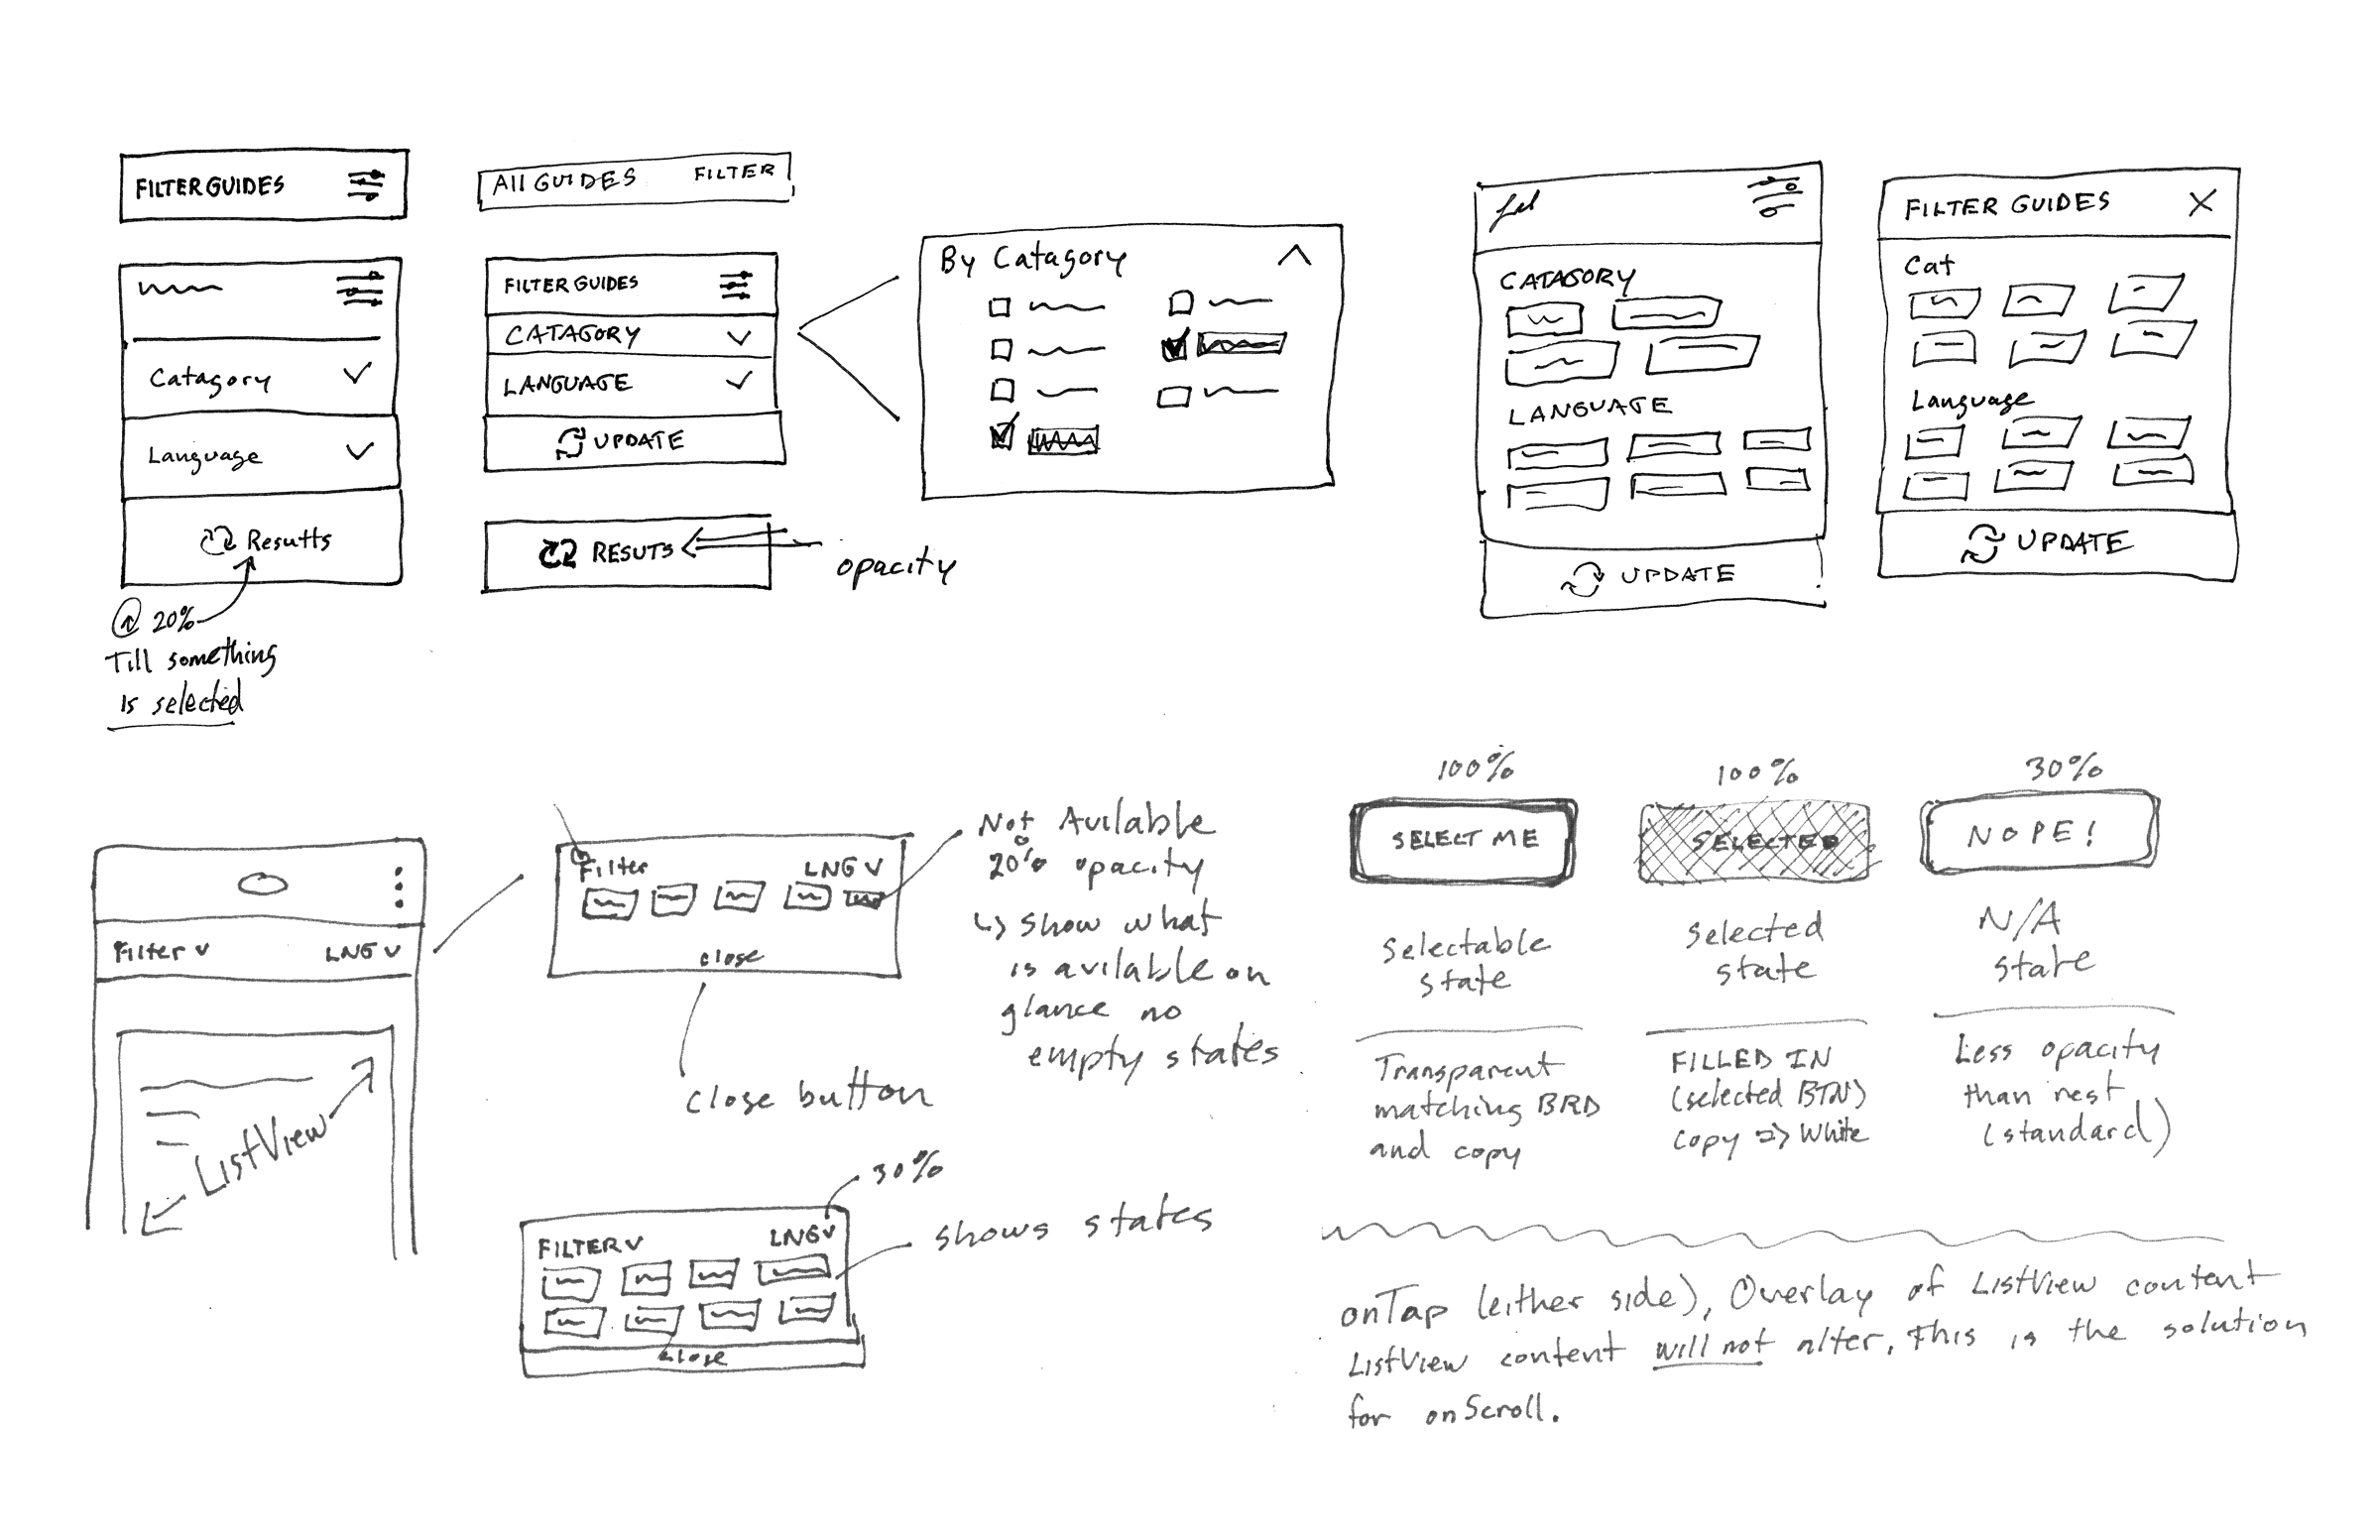 FILTER GUIDES
Catagory
Language
Resutts
@ 20%
Till something
is selected
All GUIDES FILTER
FILTER GUIDES
CATAGORY
LANGUAGE
UPDATE
RESUTS
opacity
By Catagory
CATAGORY
LANGUAGE
UPDATE
FILTER GUIDES X
Cat
Language
UPDATE
Filter v LNG v
ListView
Filter LNG v
close
close button
Not Avilable
20% opacity
↳ show what
is avilable on
glance no
empty states
30%
FILTER v LNG v
close
shows states
100%
SELECT ME
Selectable
state
Transparent
matching BRD
and copy
100%
SELECTED
Selected
state
FILLED IN
(selected BTN)
copy => White
30%
NOPE!
N/A
state
Less opacity
than rest
(standard)
onTap (either side), Overlay of ListView content
ListView content will not alter. This is the solution
for onScroll.